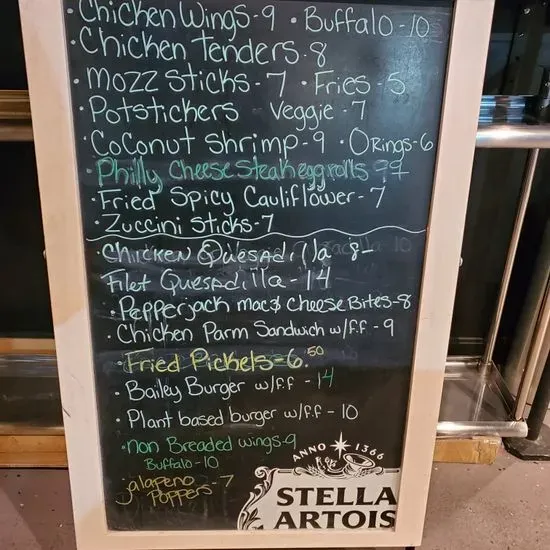 Chicken Wings - 9 • Buffalo - 10
• Chicken Tenders - 8
• Mozz Sticks - 7 • Fries - 5
• Potstickers - Veggie - 7
• Coconut Shrimp - 9 • O Rings - 6
• Philly Cheese Steak eggrolls
• Fried Spicy Cauliflower - 7
• Zuccini Sticks - 7
• Chicken Quesadilla 8-
Filet Quesadilla - 14
• Pepperjack mac & Cheese Bites - 8
• Chicken Parm Sandwich w/f.f - 9
• Fried Pickels = 6.50
• Bailey Burger w/f.f - 14
• Plant based burger w/f.f - 10
• non Breaded wings - 9
Buffalo - 10
jalapeno
Poppers - 7
ANNO 1366
STELLA
ARTOIS